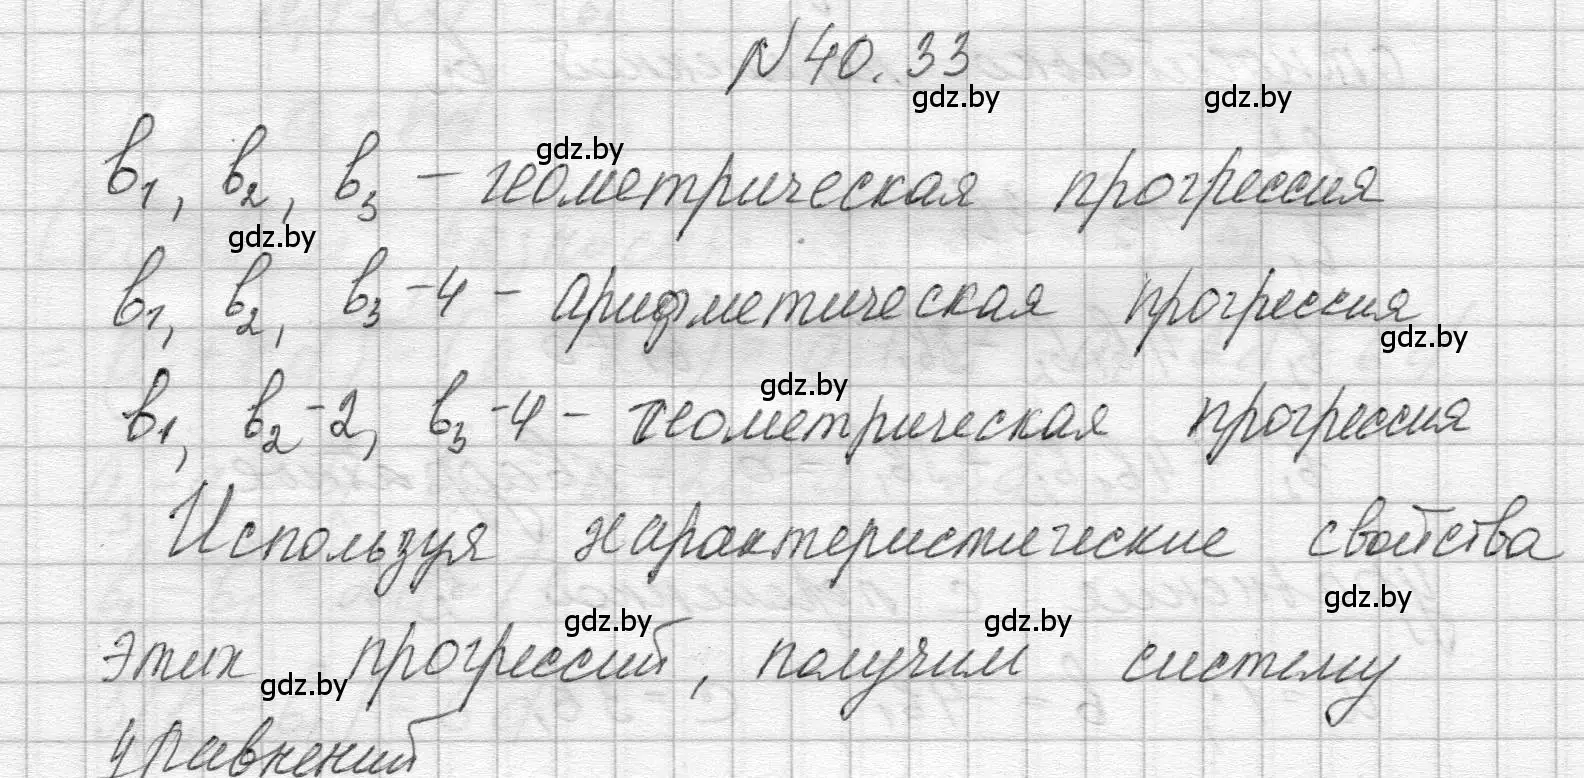 N 40.33
gdz.by gdz.by
b1, b2, b3 - геометрическая прогрессия
gdz.by
gdz.by
b1, b2, b3 - 4 - арифметическая прогрессия
gdz.by
gdz.by
b1, b2 - 2, b3 - 4 - геометрическая прогрессия
Используя характеристические свойства
gdz.by
gdz.by gdz.by
этих прогрессий, получим систему
gdz.by
уравнений